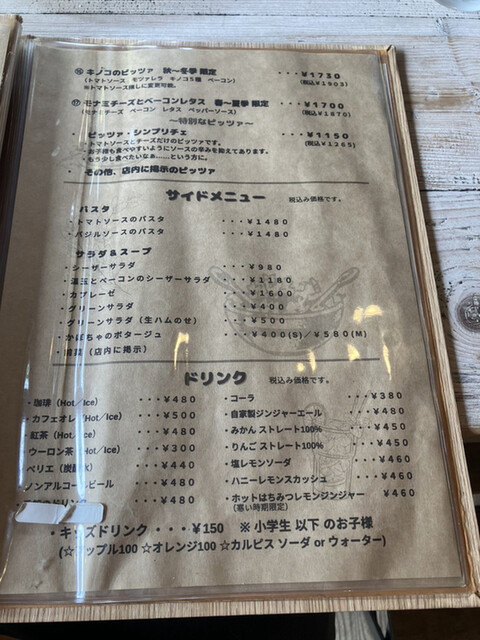 ⑯ キノコのピッツァ 秋～冬季 限定 ・・・¥1730
(トマトソース モツァレラ キノコ5種 ベーコン) (税込¥1903)
※トマトソース無しに変更可能。
⑰ モナミチーズとベーコンレタス 春～夏季 限定 ・・・¥1700
(モナミチーズ ベーコン レタス ペッパーソース) (税込¥1870)
～特別なピッツァ～
・ ピッツァ・シンプリチェ ・・・¥1150
・トマトソースとチーズだけのピッツァです。 (税込¥1265)
・お子様も食べやすいようにソースの辛みを抑えてあります。
・もう少し食べたいなぁ……という方に。
・ その他、店内に掲示のピッツァ
サイドメニュー 税込み価格です。
パスタ
・トマトソースのパスタ ・・・¥1480
・バジルソースのパスタ ・・・¥1480
サラダ&スープ
・シーザーサラダ ・・・¥980
・温玉とベーコンのシーザーサラダ ・・・¥1180
・カプレーゼ ・・・¥1600
・グリーンサラダ ・・・¥400
・グリーンサラダ(生ハムのせ) ・・・¥500
・かぼちゃのポタージュ ・・・¥400(S)/¥580(M)
(店内に掲示)
ドリンク 税込み価格です。
・珈琲(Hot/Ice) ・・・¥480
・カフェオレ(Hot/Ice) ・・・¥500
・紅茶(Hot/Ice) ・・・¥480
・ウーロン茶(Hot/Ice) ・・・¥300
ペリエ(炭酸水) ・・・¥440
ノンアルコールビール ・・・¥480
のドリンク ・・・¥480
・コーラ ・・・¥380
・自家製ジンジャーエール ・・・¥480
・みかん ストレート100% ・・・¥450
・りんご ストレート100% ・・・¥450
・塩レモンソーダ ・・・¥460
・ハニーレモンスカッシュ ・・・¥460
・ホットはちみつレモンジンジャー ・・・¥460
(寒い時期限定)
・キッズドリンク ・・・¥150 ※小学生 以下 のお子様
(☆アップル100 ☆オレンジ100 ☆カルピス ソーダ or ウォーター)